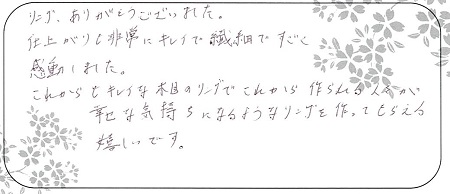 リング、ありがとうございました。
仕上がりも非常にキレイで繊細ですごく
感動しました。
これからもキレイな木目のリングでこれから作られる人々が
幸せな気持ちになるようなリングを作ってもらえると
嬉しいです。